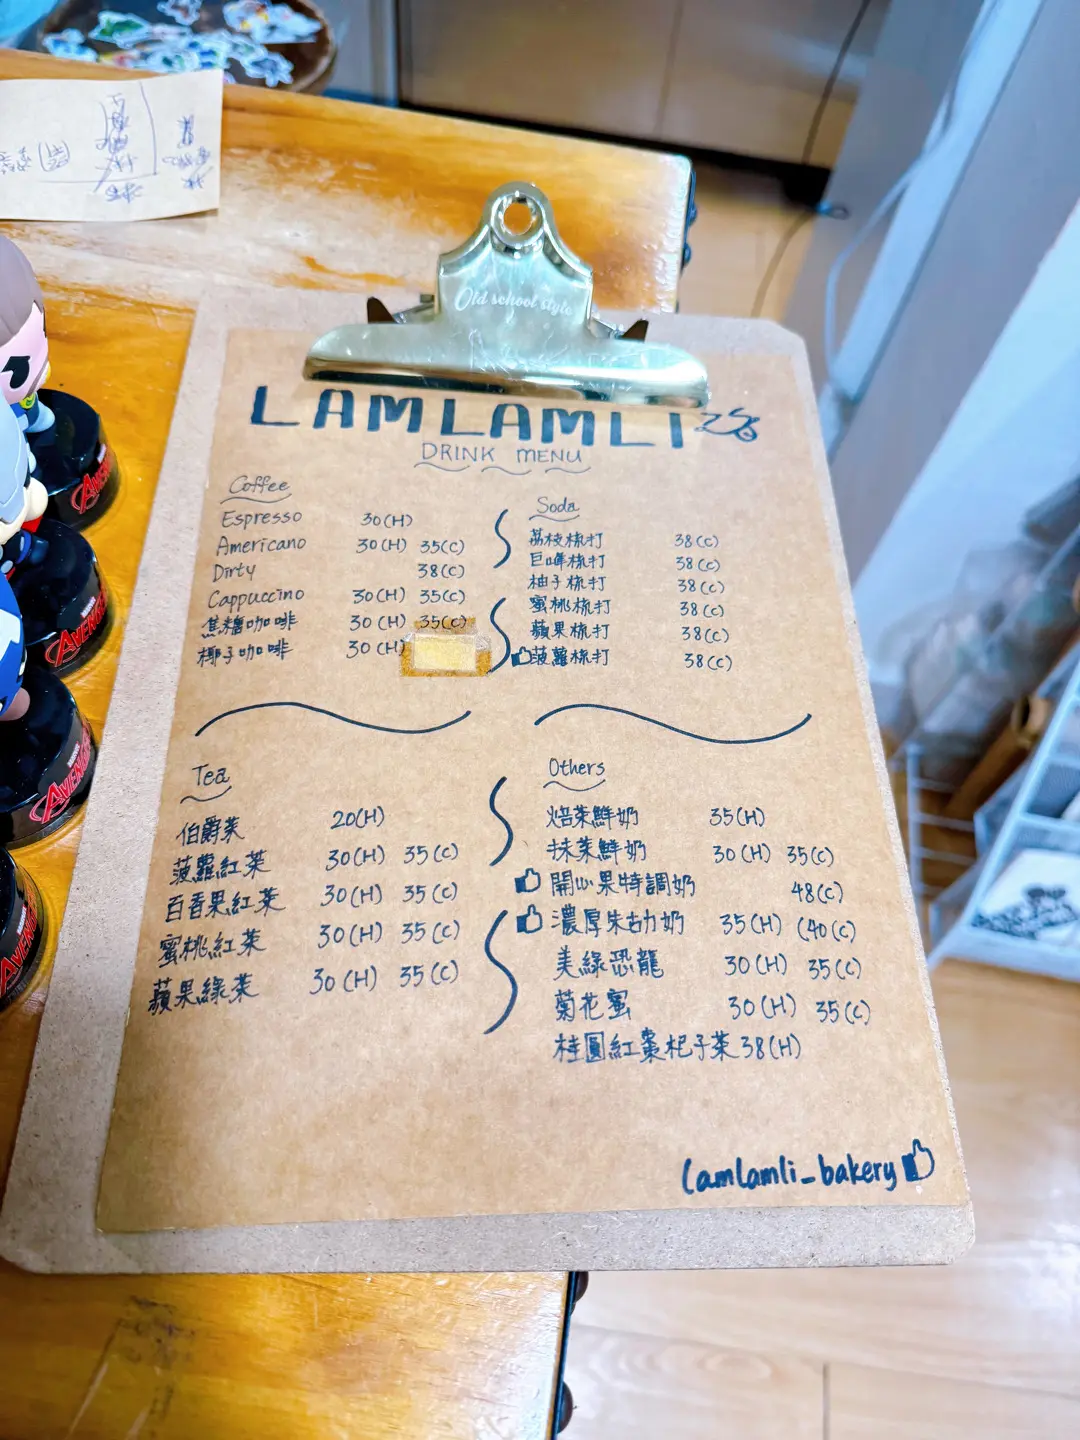 Old school style
LAMLAMLI
DRINK MENU
Coffee
Espresso 30(H)
Americano 30(H) 35(C)
Dirty 38(C)
Cappuccino 30(H) 35(C)
焦糖咖啡 30(H) 35(C)
椰子咖啡 30(H)
Soda
荔枝梳打 38(C)
巨峰梳打 38(C)
柚子梳打 38(C)
蜜桃梳打 38(C)
蘋果梳打 38(C)
菠蘿梳打 38(C)
Tea
伯爵茶 20(H)
菠蘿紅茶 30(H) 35(C)
百香果紅茶 30(H) 35(C)
蜜桃紅茶 30(H) 35(C)
蘋果綠茶 30(H) 35(C)
Others
焙茶鮮奶 35(H)
抹茶鮮奶 30(H) 35(C)
開心果特調奶 48(C)
濃厚朱古力奶 35(H) (40(C)
美綠恐龍 30(H) 35(C)
菊花蜜 30(H) 35(C)
桂圓紅棗杞子茶 38(H)
lamlamli_bakery
AVENGERS
MARVEL
AVENGERS
MARVEL
AVENGERS
AVENGERS